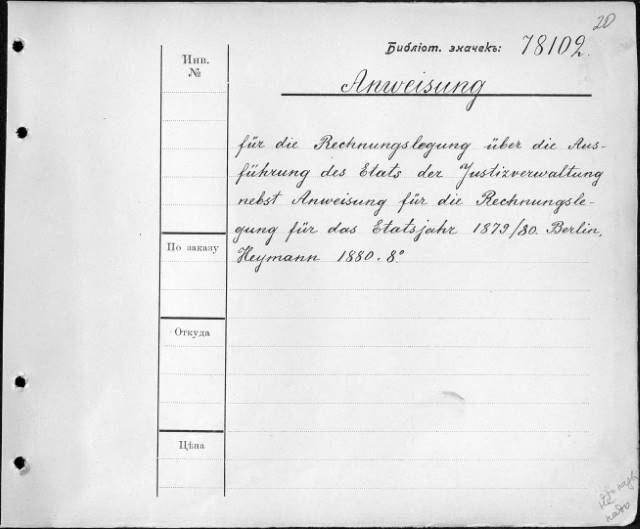 20
Библіот. значекъ: 78102.
Инв.
№
Anweisung
für die Rechnungslegung über die Aus-
führung des Etats der Justizverwaltung
nebst Anweisung für die Rechnungsle-
gung für das Etatsjahr 1879/80. Berlin,
Heymann 1880. 8°
По заказу
Откуда
Цѣна
не
надо